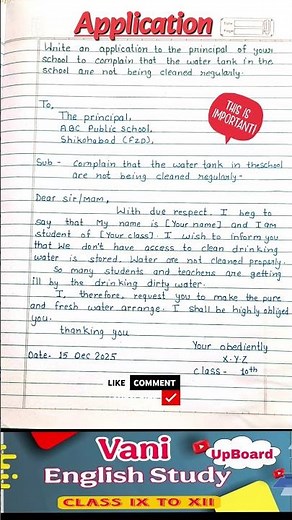 Application
Date:
Page:
Write an application to the principal of your
school to complain that the water tank in the
school are not being cleaned regularly.
To,
The principal,
ABC Public School,
Shikohabad (FZD),
THIS IS
IMPORTANT!
Sub - Complain that the water tank in theschool
are not being cleaned regularly-
Dear sir/mam,
With due respect. I beg to
say that My name is [Your name] and I am
student of [Your class]. I wish to inform you
that We don't have access to clean drinking
water is stored. Water are not cleaned properly.
So many students and teachers are getting
ill by the drinking dirty water.
I, therefore, request you to make the pure
and fresh water arrange. I shall be highly obliged
you.
thanking you
Your obediently
Date. 15 Dec 2025
X.Y.Z
class - 10th
LIKE
COMMENT
Vani
UpBoard
English Study
CLASS IX TO XII